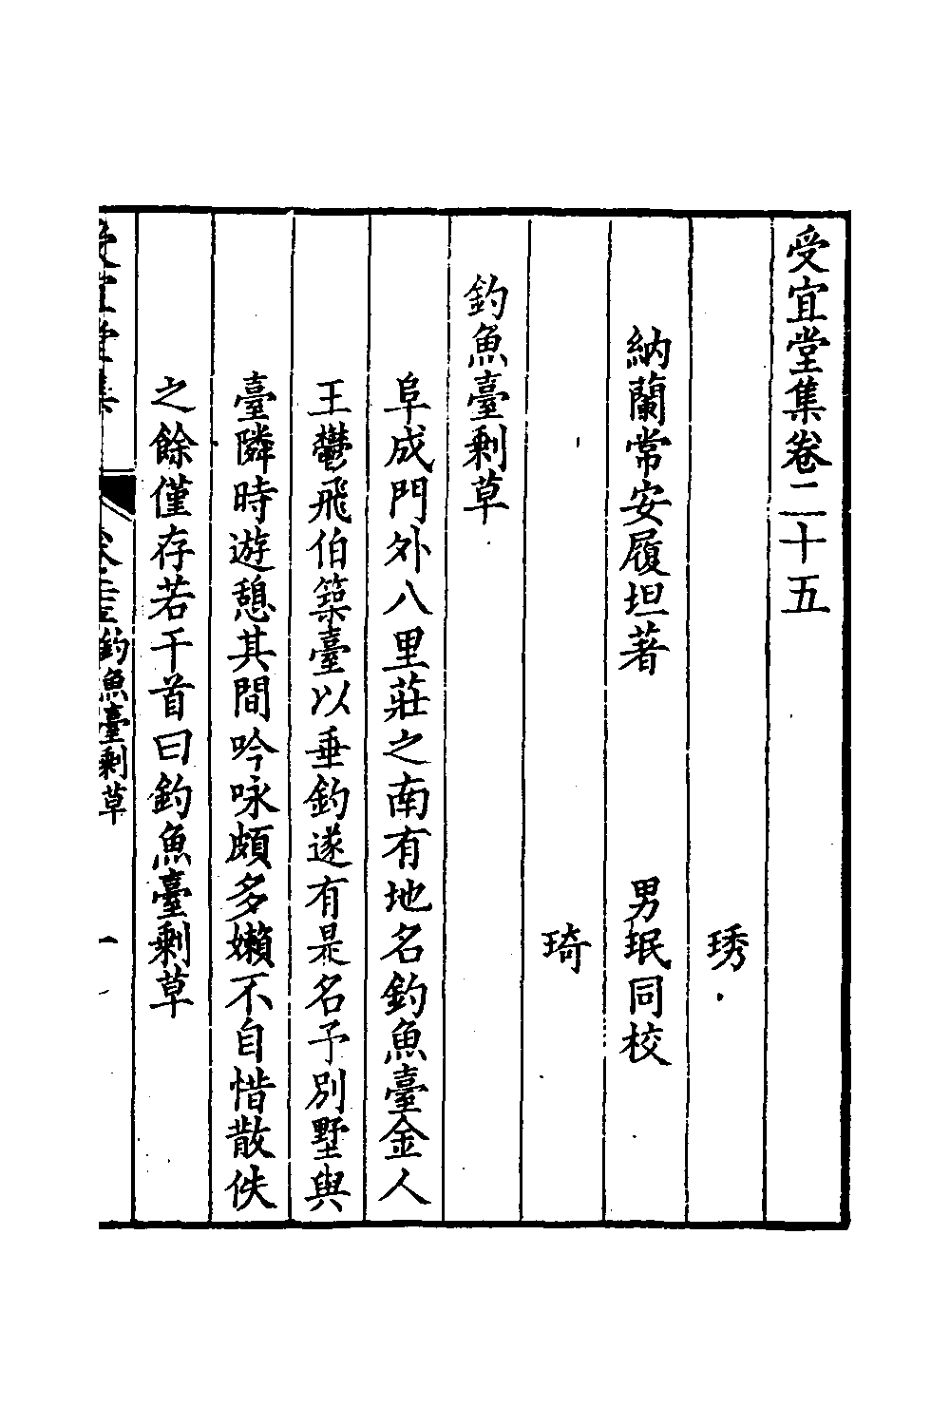 受宜堂集卷二十五
琇
納蘭常安履坦著 男珉同校
琦
釣魚臺剩草
阜成門外八里莊之南有地名釣魚臺金人
王鬱飛伯築臺以垂釣遂有是名予別墅與
臺隣時遊憩其間吟咏頗多嬾不自惜散佚
之餘僅存若干首曰釣魚臺剩草
受宜堂集 釣魚臺剩草 一